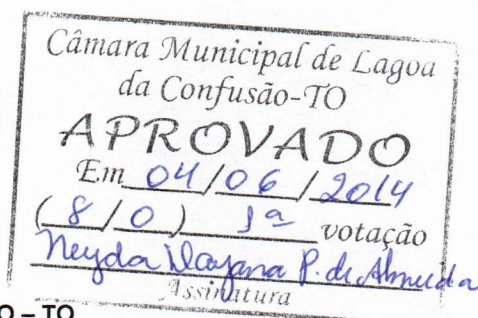 Câmara Municipal de Lagoa
da Confusão-TO
APROVADO
Em 04/06/2014
(8/0) 1ª votação
Neyda Dayana P. de Almeida
Assinatura
O – TO